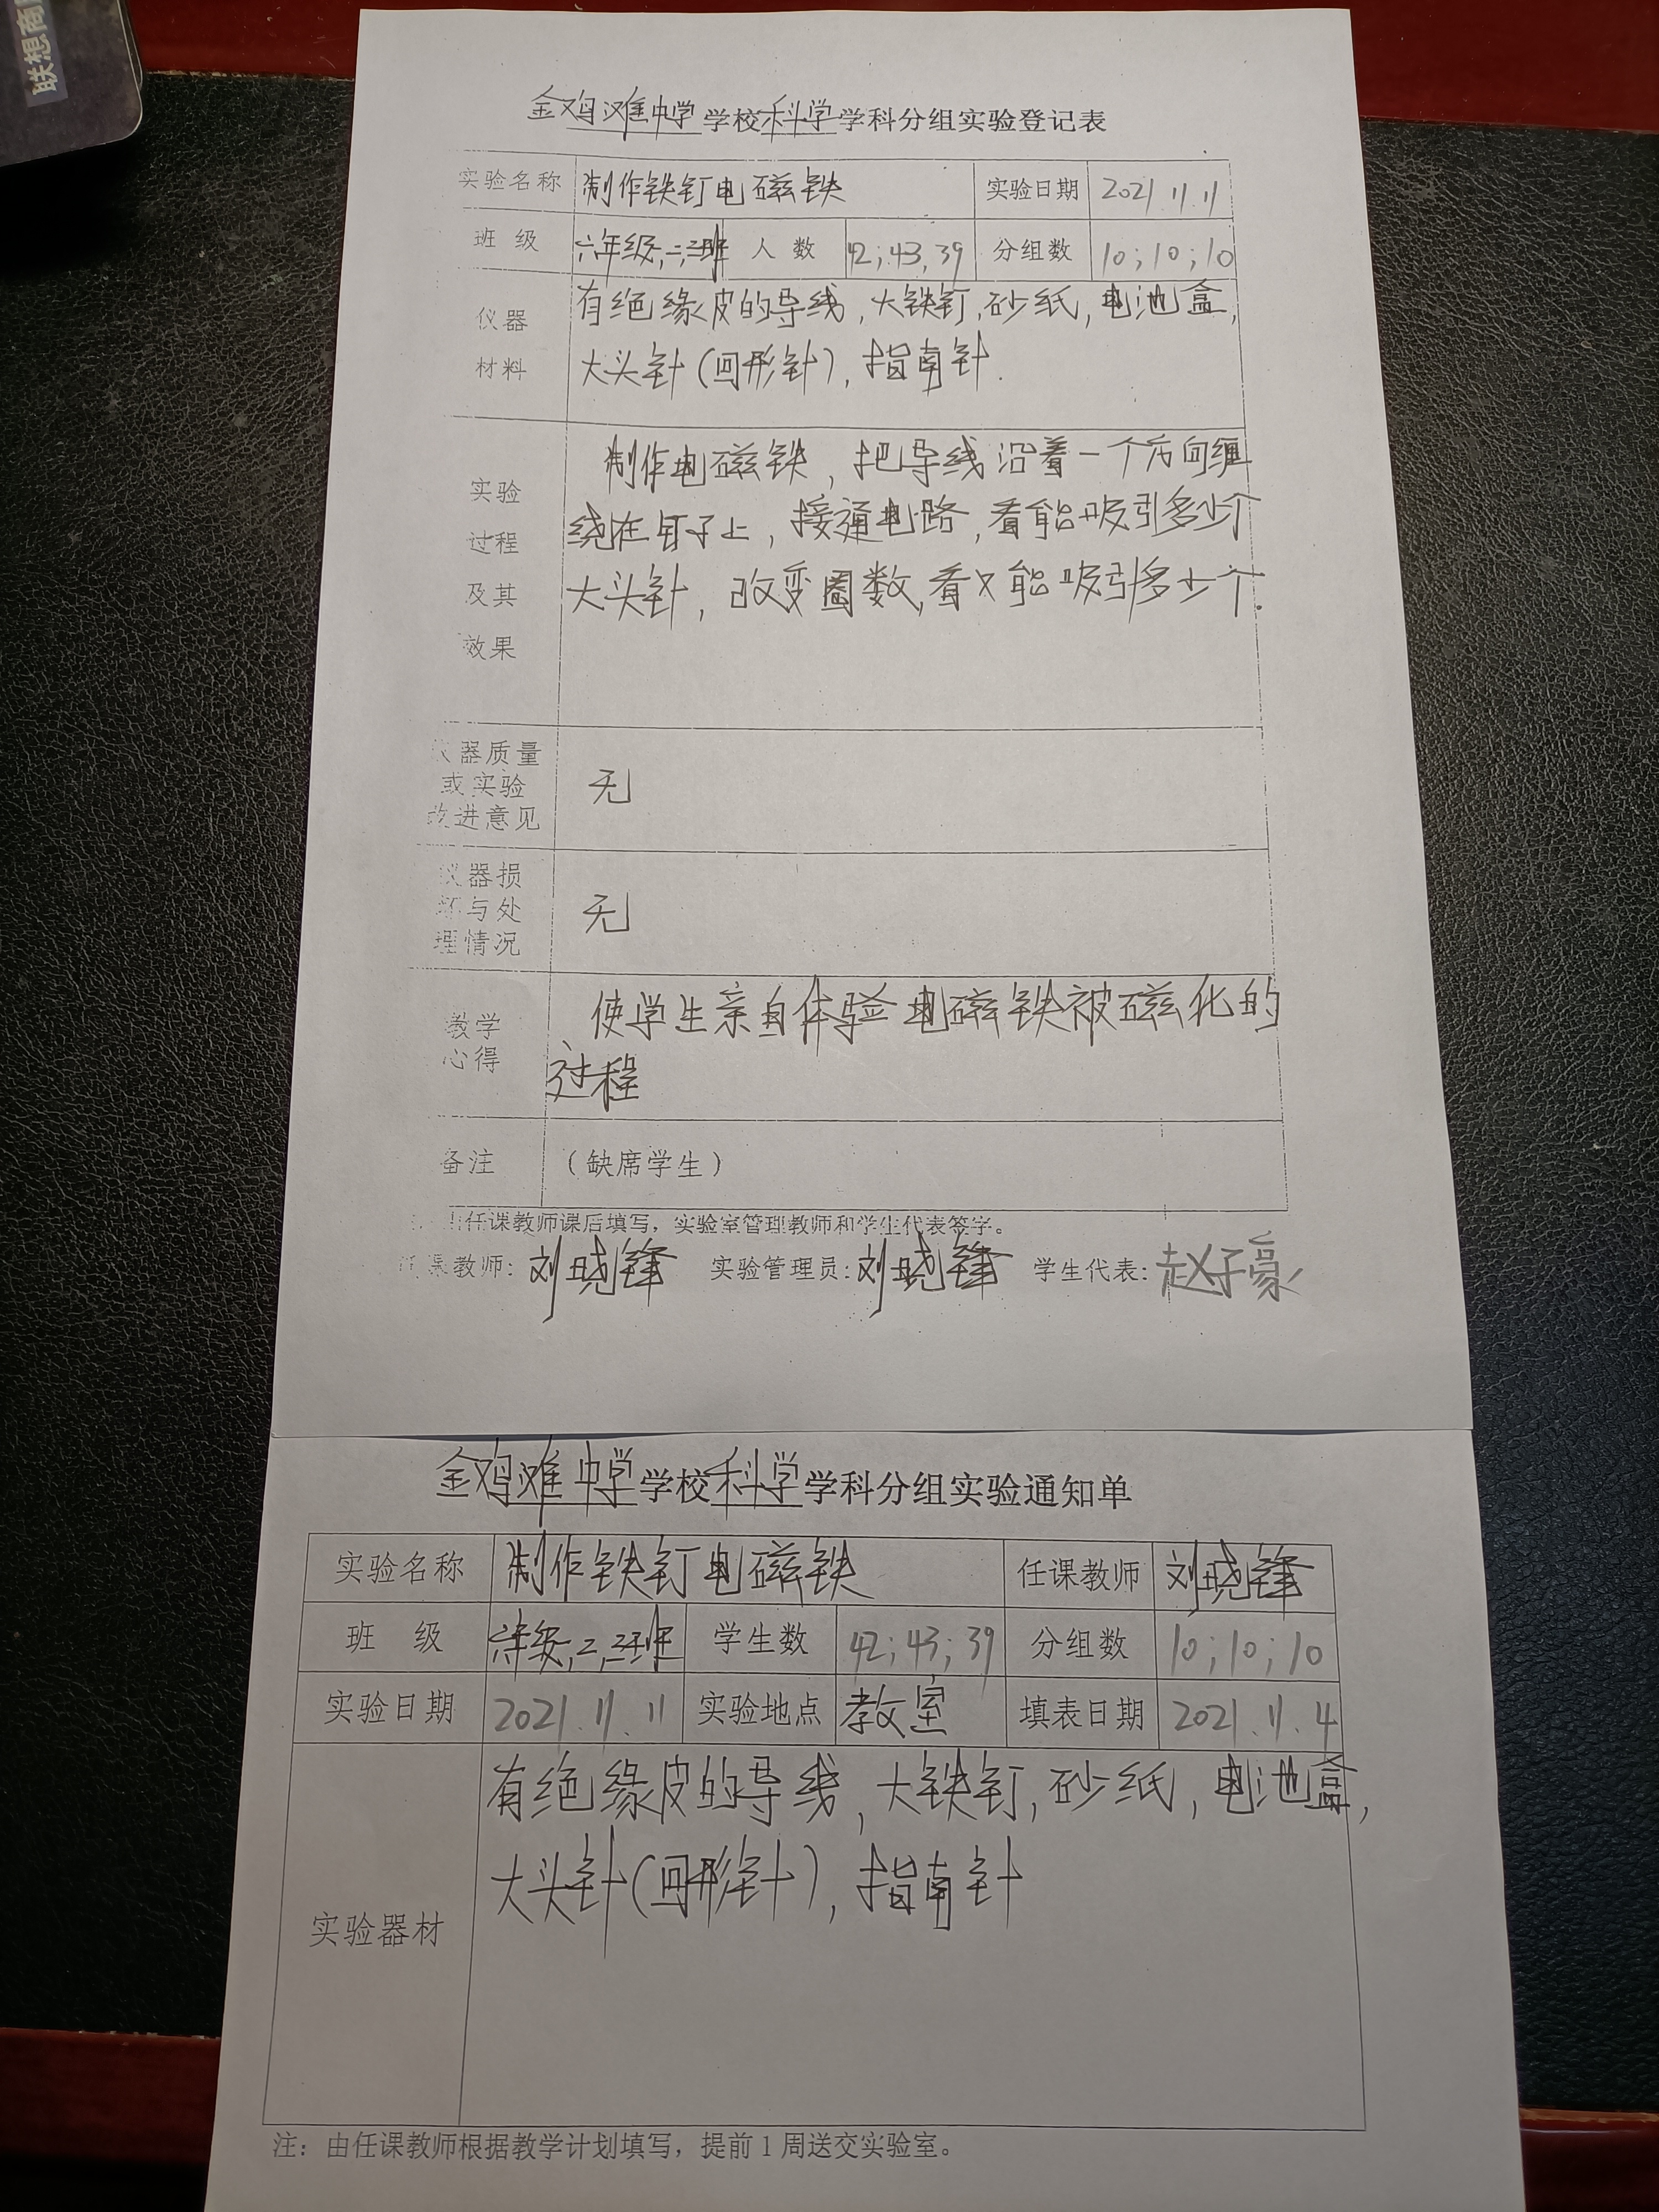 联想商
金鸡滩中学学校科学学科分组实验登记表
实验名称 制作铁钉电磁铁 实验日期 2021.11.11
班 级 六年级一,二,三班 人 数 42;43,39 分组数 10;10;10
仪器
材料
有绝缘皮的导线,大铁钉,砂纸,电池盒,
大头针(回形针),指南针.
实验
过程
及其
效果
制作电磁铁,把导线沿着一个方向缠
绕在钉子上,接通电路,看能吸引多少个
大头针,改变圈数,看又能吸引多少个.
仪器质量
或实验
改进意见
无
仪器损
坏与处
理情况
无
教学
心得
使学生亲自体验电磁铁被磁化的
过程
备注 (缺席学生)
由任课教师课后填写,实验室管理教师和学生代表签字。
任课教师:刘晓锋 实验管理员:刘晓锋 学生代表:赵子豪
金鸡滩中学学校科学学科分组实验通知单
实验名称 制作铁钉电磁铁 任课教师 刘晓锋
班 级 六年级一,二,三班 学生数 42;43;39 分组数 10;10;10
实验日期 2021.11.11 实验地点 教室 填表日期 2021.11.4
实验器材
有绝缘皮的导线,大铁钉,砂纸,电池盒,
大头针(回形针),指南针
注：由任课教师根据教学计划填写，提前1周送交实验室。